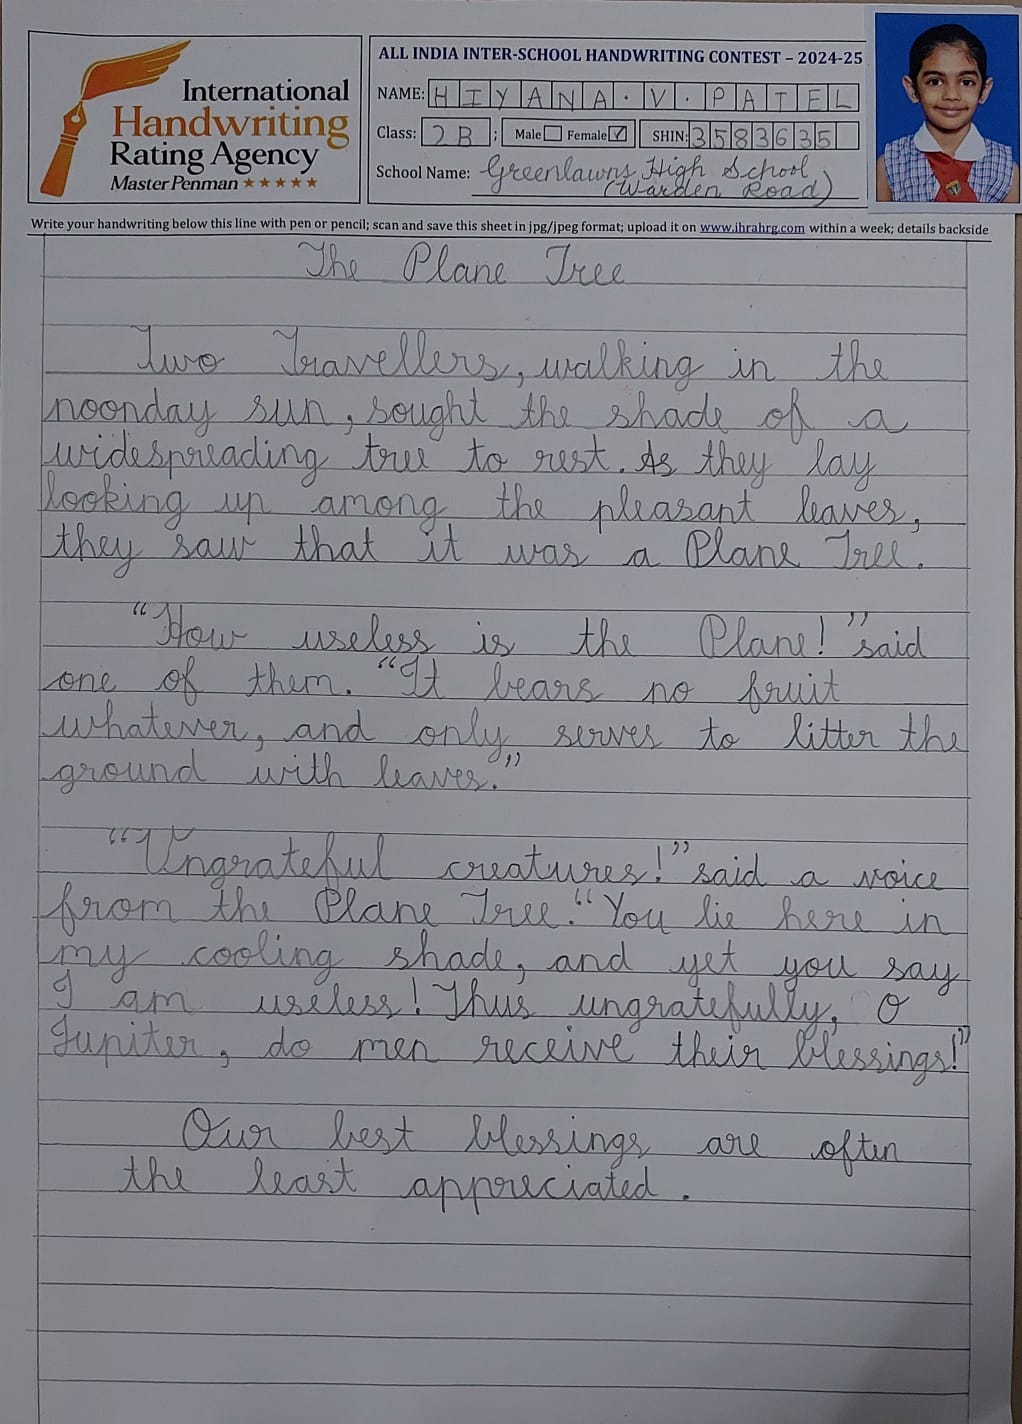 International
Handwriting
Rating Agency
Master Penman ★★★★★
ALL INDIA INTER-SCHOOL HANDWRITING CONTEST – 2024-25
NAME: HIYANA.V.PATEL
Class: 2B ; Male Female ✓ SHIN: 3583635
School Name: Greenlawns High School,
(Warden Road)
Write your handwriting below this line with pen or pencil; scan and save this sheet in jpg/jpeg format; upload it on www.ihrahrg.com within a week; details backside
The Plane Tree
Two Travellers, walking in the
noonday sun, sought the shade of a
widespreading tree to rest. As they lay
looking up among the pleasant leaves,
they saw that it was a Plane Tree.
"How useless is the Plane!" said
one of them. "It bears no fruit
whatever, and only serves to litter the
ground with leaves."
"Ungrateful creatures!" said a voice
from the Plane Tree. "You lie here in
my cooling shade, and yet you say
I am useless! Thus ungratefully, O
Jupiter, do men receive their blessings!"
Our best blessings are often
the least appreciated.